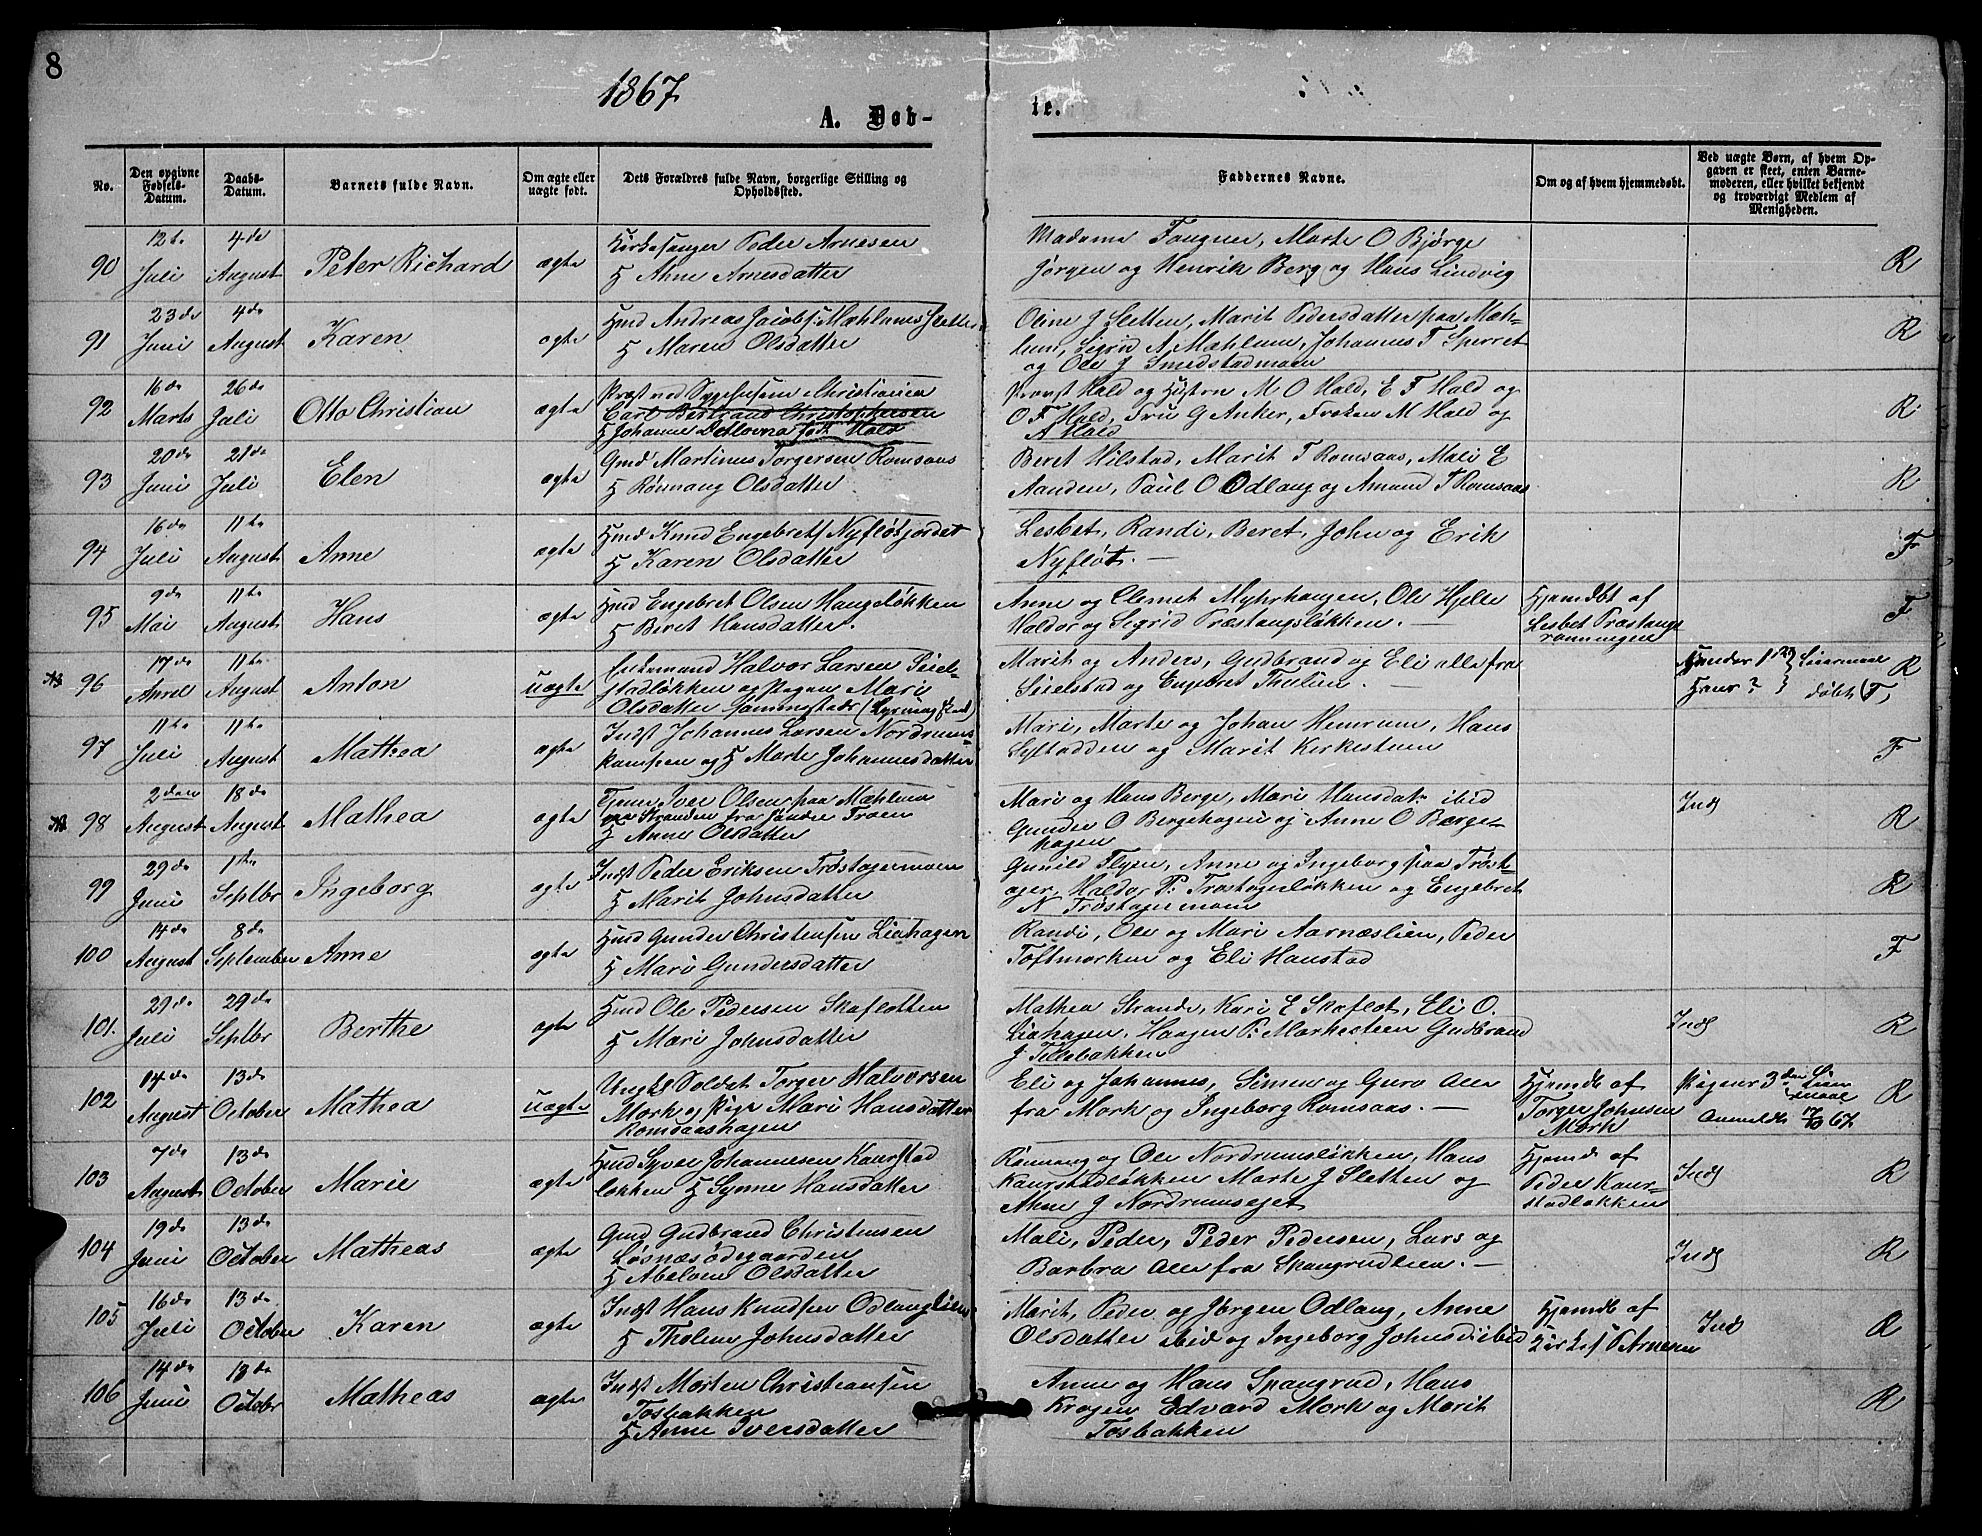 8
1867
A. Døb-
te.
No.
Den opgivne Fødsels-Datum.
Daabs-Datum.
Barnets fulde Navn.
Om ægte eller uægte født.
Dets Forældres fulde Navn, borgerlige Stilling og Opholdssted.
Faddernes Navne.
Om og af hvem hjemmedøbt.
Ved uægte Børn, af hvem Op-
gaven er skeet, enten Barne-
moderen, eller hvilket bekjendt
og troværdigt Medlem af
Menigheden.
90 12te Juli 4de August Peter Richard ægte Kirkesanger Peder Arnesen
H Ahne Arnesdatter
Madame Faugner, Marte O Bjørge
Jørgen og Henrik Berg og Hans Lindvig
R
91 23de Juni 4de August Karen ægte Hmd Andreas Jacobs: Mæhlumsletten
H Maren Olsdatter
Oline J Sletten, Marit Pedersdatter paa Mæh-
lum, Sigrid A Mæhlum, Johannes T Sperret
og Ole J Smedstadmoen
R
92 16de Marts 26de Juli Otto Christian ægte Præst ved Sygehusene i Christiania
Carl Bertrand Christophersen
H Johanne Detlovna født Hald
Provst Hald og Hustru M O Hald, E F Hald og
O F Hald, Fru G Anker, Frøken M Hald og
A Hald
R
93 20de Juni 21de Juli Elen ægte Gmd Martinus Torgersen Romsaas
H Rønnaug Olsdatter
Beret Hilstad, Marit T Romsaas, Mali E
Aanden, Paul O Odlaug og Amund T Romsaas
R
94 16de Juli 11te August Anne ægte Hmd Knud Engebrets Nyfløtjordet
H Karen Olsdatter
Lesbet, Randi, Beret, John og Erik
Nyfløt. —
F
95 9de Mai 11te August Hans ægte Hmd Engebret Olsen Haugeløkken
H Beret Hansdatter.
Anne og Clemet Myhrhaugen, Ole Hjelte
Haldor og Sigrid Præstangsløkken. —
Hjemdbt af
Lesbet Præstangs
rønningen
F
NB 96 17de April 11te August Anton uægte Enkemand Halvor Larsen Seiel-
stadløkken og Pigen Mari
Olsdatter sammestads
Marit og Anders, Gudbrand og Eli alle fra
Seielstad og Engebret Thulien. —
R
97 11te Juli 11te August Mathea ægte Indst Johannes Larsen Nordrums-
kampen og H Marte Johannesdatter
Mari, Marte og Johan Hemrum, Hans
Sylstadden og Marit Kirkestuen
F
NB 98 2den August 18de August Mathea ægte Tjener Iver Olsen paa Mæhlum
fra søndre Troen
H Anne Olsdatter
Mari og Hans Berge, Mari Hansdatr ibid
Gunder O Bergehagen og Anne O Berge-
hagen
Inds
R
99 29de Juni 1te Septbr Ingeborg ægte Indst Peder Eriksen Trøstagermoen
H Marit Johnsdatter
Gunild Flyen, Anne og Ingeborg paa Trøst-
ager, Haldor P: Trøstagerløkken og Engebret
N Trøstagermoen
R
100 14de August 8de September Anne ægte Hmd Gunder Christensen Liahagen
H Mari Gundersdatter
Randi, Ole og Mari Aarnæslien, Peder
Toftmorken og Eli Haustad
F
101. 29de Juli 29de Septbr Berthe ægte Hmd Ole Pedersen Skafløtten
H Mari Johnsdatter
Mathea Strande, Kari E Skafløt, Eli O.
Liahagen, Haagen P: Morkesteen Gudbrand
J Tillebakken
Inds
R
102 14de August 13de October Mathea uægte Ungk Soldat Torger Halvorsen
Mork og Pige Mari Hansdatter
Romsaashagen
Eli og Johannes, Simen og Guro Alle
fra Mork og Ingeborg Romsaas. —
Hjemdb af
Torger Johnsen
Mork
Pigens 3die Leier
maal
Anmeldt 17/10 67
R
103 7de August 13de October Marie ægte Hmd Syver Johannesen Kaurstad
løkken H Synne Hansdatter
Rønnaug og Ole Nordrumsløkken, Hans
Kaurstadløkken Marte J Sletten og
Ahne J Nordrumsejet
Hjemdb af
Peder Kaur-
stadløkken
Inds
R
104 19de Juni 13de October Matheas ægte Gmd Gudbrand Christensen
Løsnæsødegaarden
H Abelone Olsdatter
Mali, Peder, Peder Pedersen, Lars og
Barbra Alle fra Spangrudlien. —
Inds
R
105 16de Juli 13de October Karen ægte Indst Hans Knudsen Odlauglien
H Tholene Johnsdatter
Marit, Peder og Jørgen Odlaug, Anne
Olsdatter ibid og Ingeborg Johnsd ibid
Hjemdb af
Kirkes P Arnesen
Inds
R
106 14de Juni 13de Octobr Matheas ægte Indst Morten Christiansen
Tosbakken
H Anne Iversdatter
Anne og Hans Spangrud, Hans
Krogen Edvard Mork og Marit
Tosbakken
R